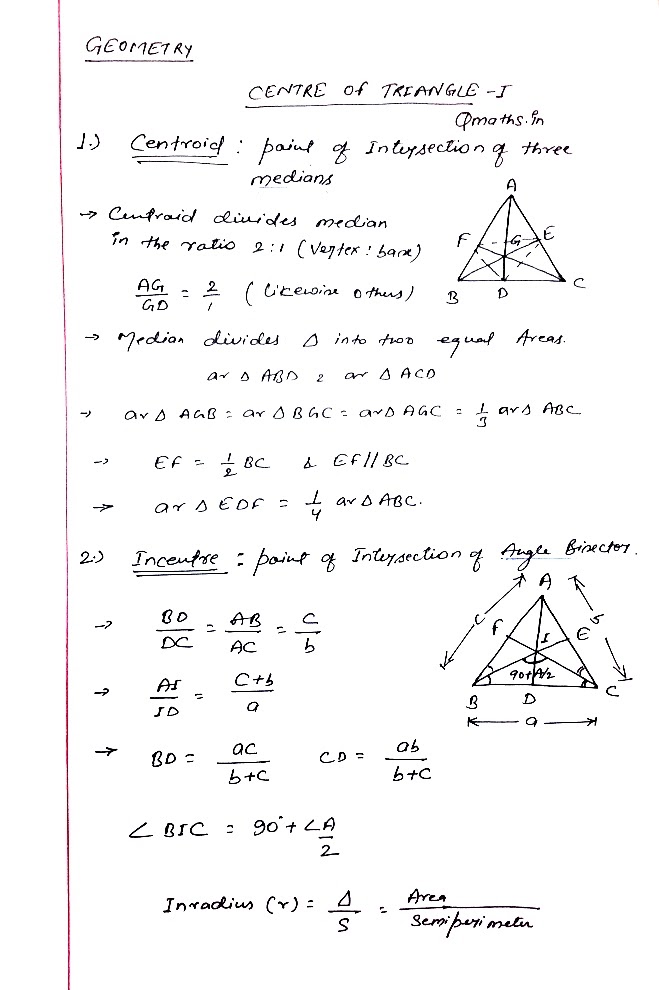 GEOMETRY
CENTRE OF TRIANGLE -I
@maths.in
1.) Centroid : point of Intersection of three
medians
→ Centroid divides median
in the ratio 2:1 (Vertex : base)
AG/GD = 2/1 (likewise others)
→ Median divides Δ into two equal Areas.
ar Δ ABD = ar Δ ACD
→ ar Δ AGB = ar Δ BGC = ar Δ AGC = 1/3 ar Δ ABC
→ EF = 1/2 BC & EF // BC
→ ar Δ EDF = 1/4 ar Δ ABC.
A
F G E
B D C
2.) Incentre : point of Intersection of Angle Bisector.
→ BD/DC = AB/AC = c/b
→ AI/ID = c+b/a
→ BD = ac/b+c CD = ab/b+c
∠ BIC = 90° + ∠A/2
Inradius (r) = Δ/S = Area/Semiperimeter
A
c b
F I E
90+A/2
B D C
a